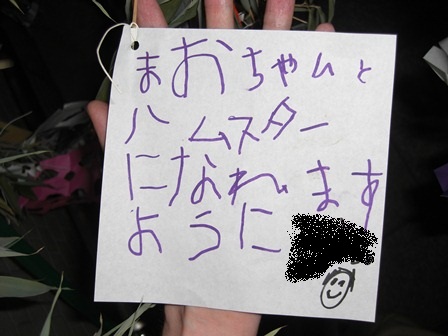 まおちゃんと
ハムスター
になれます
ように